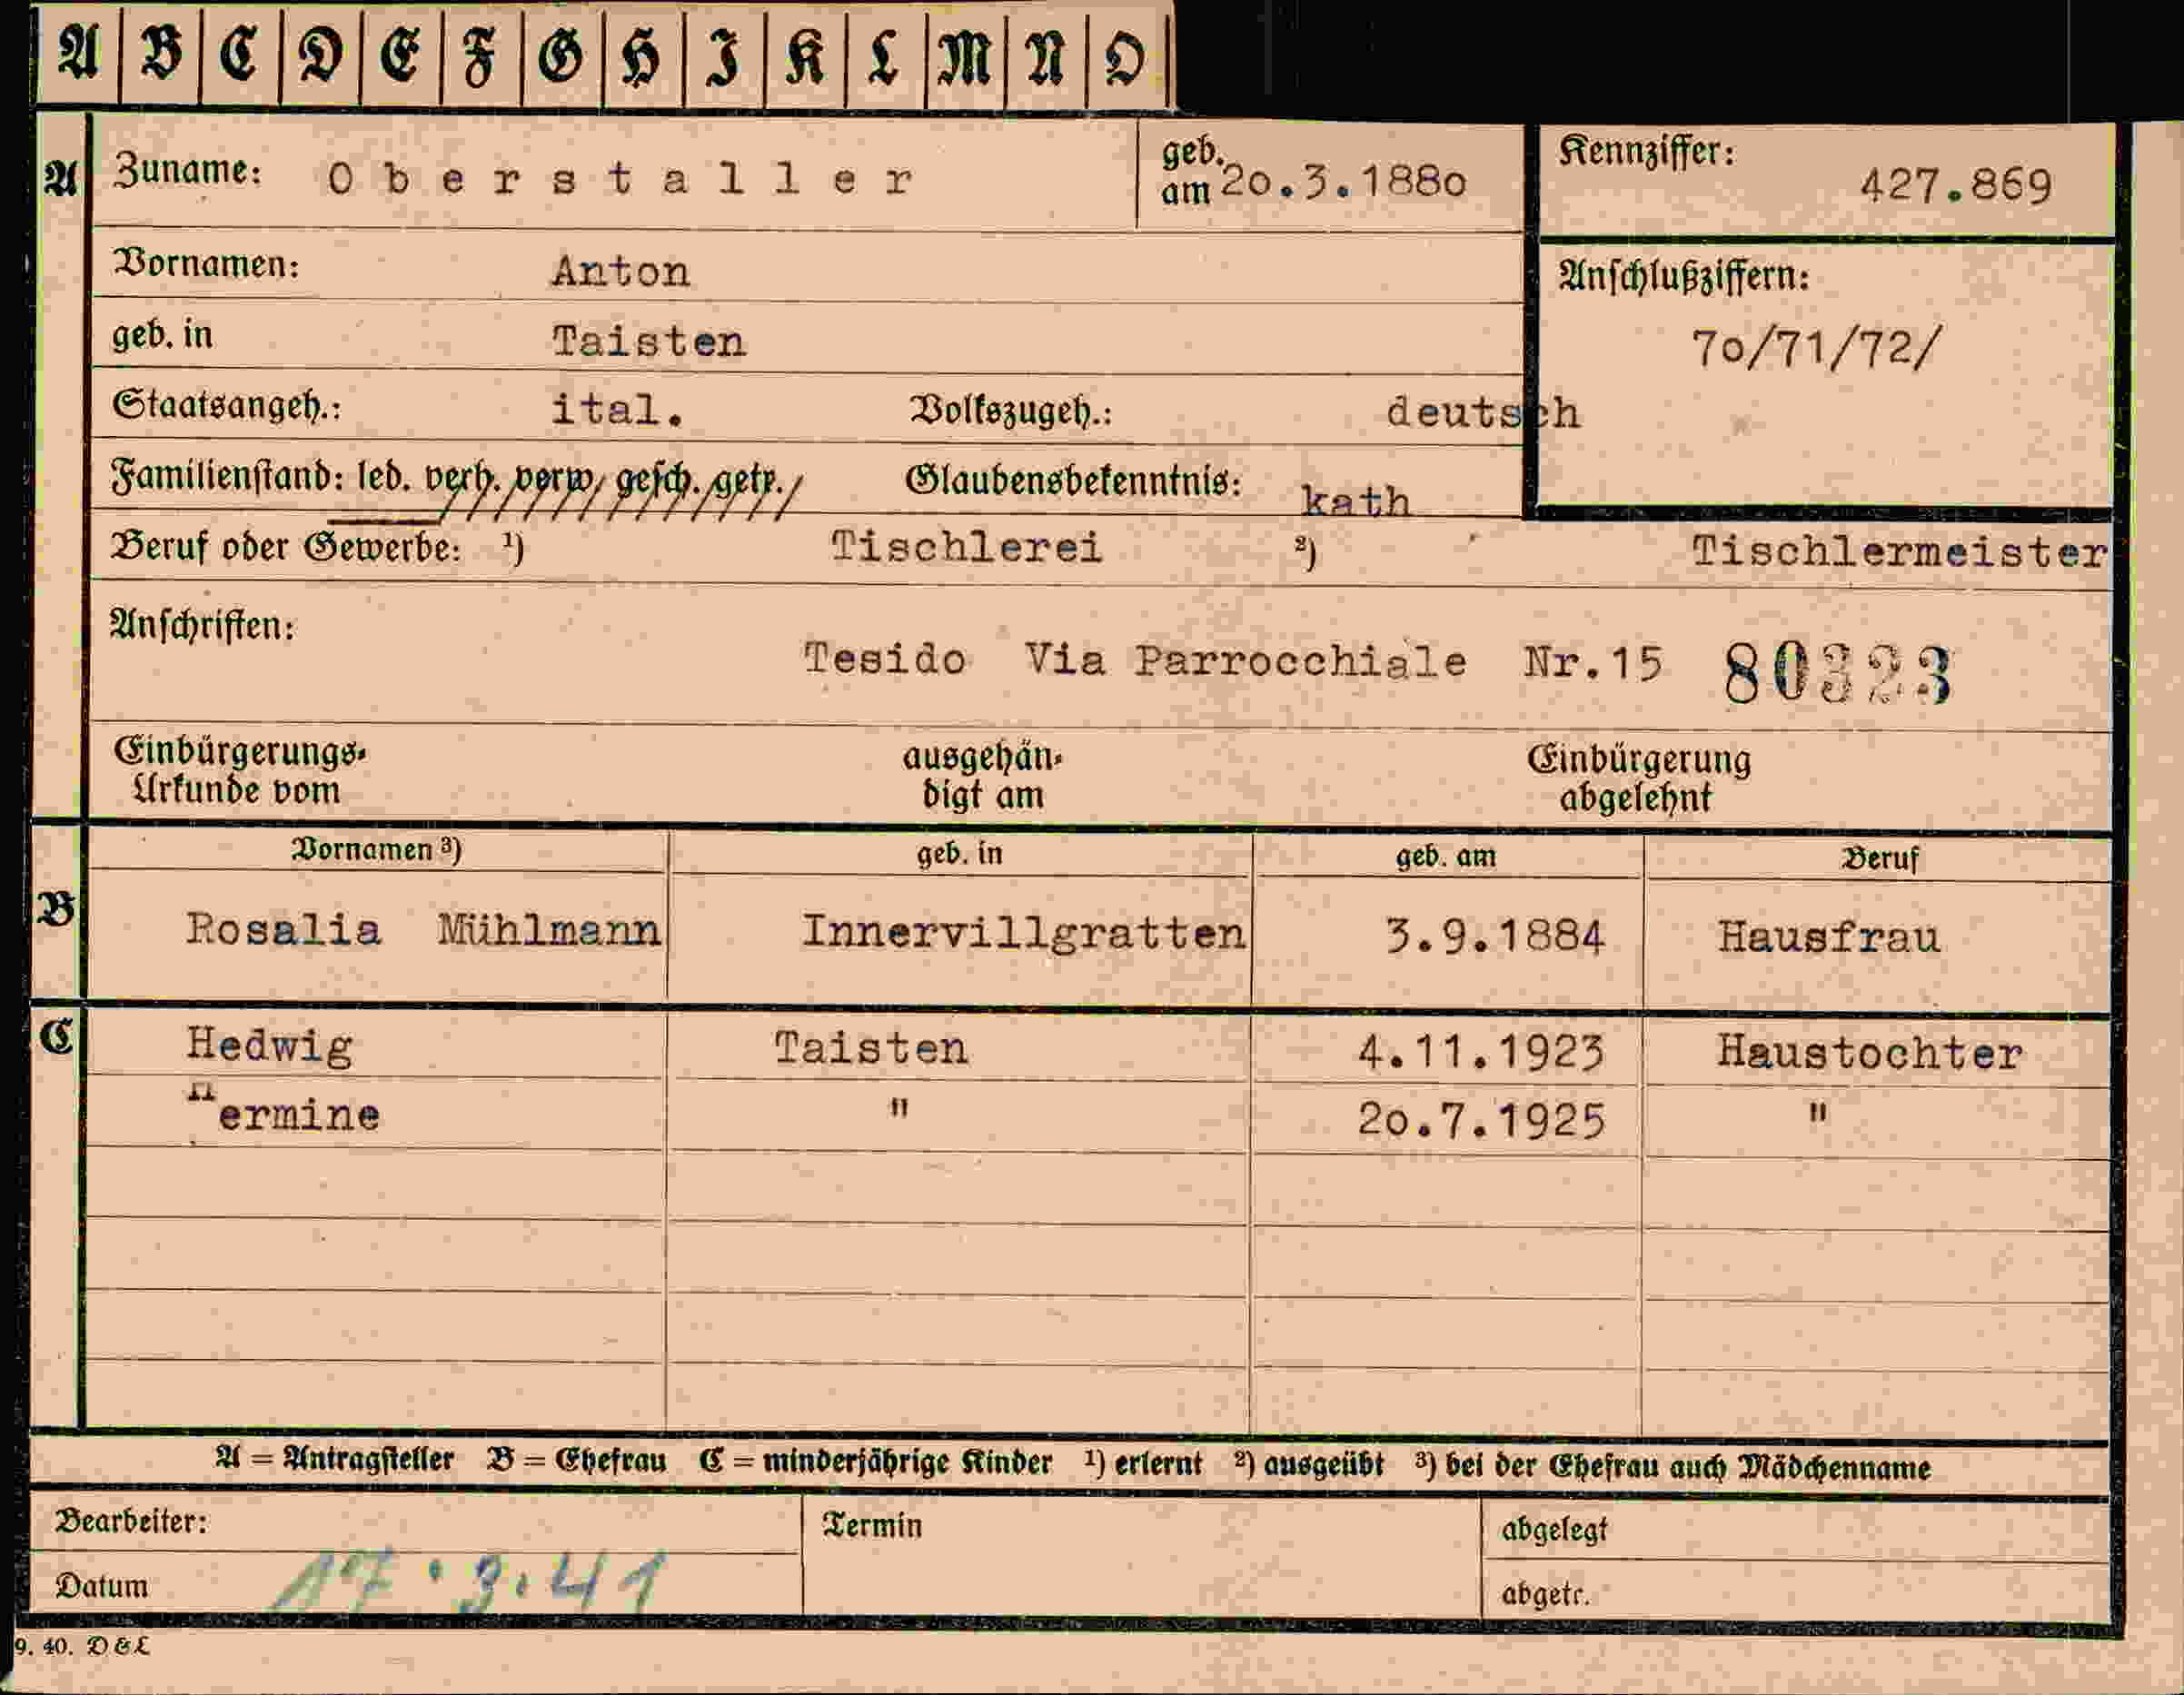 A B C D E F G H I K L M N O
A Zuname: Oberstaller geb. am 20.3.1880 Kennziffer: 427.869
Vornamen: Anton Anschlußziffern:
geb. in Taisten 70/71/72/
Staatsangeh.: ital. Volkszugeh.: deutsch
Familienstand: led. verh. verw. gesch. getr. Glaubensbekenntnis: kath
Beruf oder Gewerbe: ¹) Tischlerei ²) Tischlermeister
Anschriften:
Tesido Via Parrocchiale Nr.15 80323
Einbürgerungs- ausgehän- Einbürgerung
Urkunde vom digt am abgelehnt
Vornamen ³) geb. in geb. am Beruf
B Rosalia Mühlmann Innervillgratten 3.9.1884 Hausfrau
C Hedwig Taisten 4.11.1923 Haustochter
Hermine " 20.7.1925 "
A = Antragsteller B = Ehefrau C = minderjährige Kinder ¹) erlernt ²) ausgeübt ³) bei der Ehefrau auch Mädchenname
Bearbeiter: Termin abgelegt
Datum 17.3.41 abgetr.
9. 40. D & L